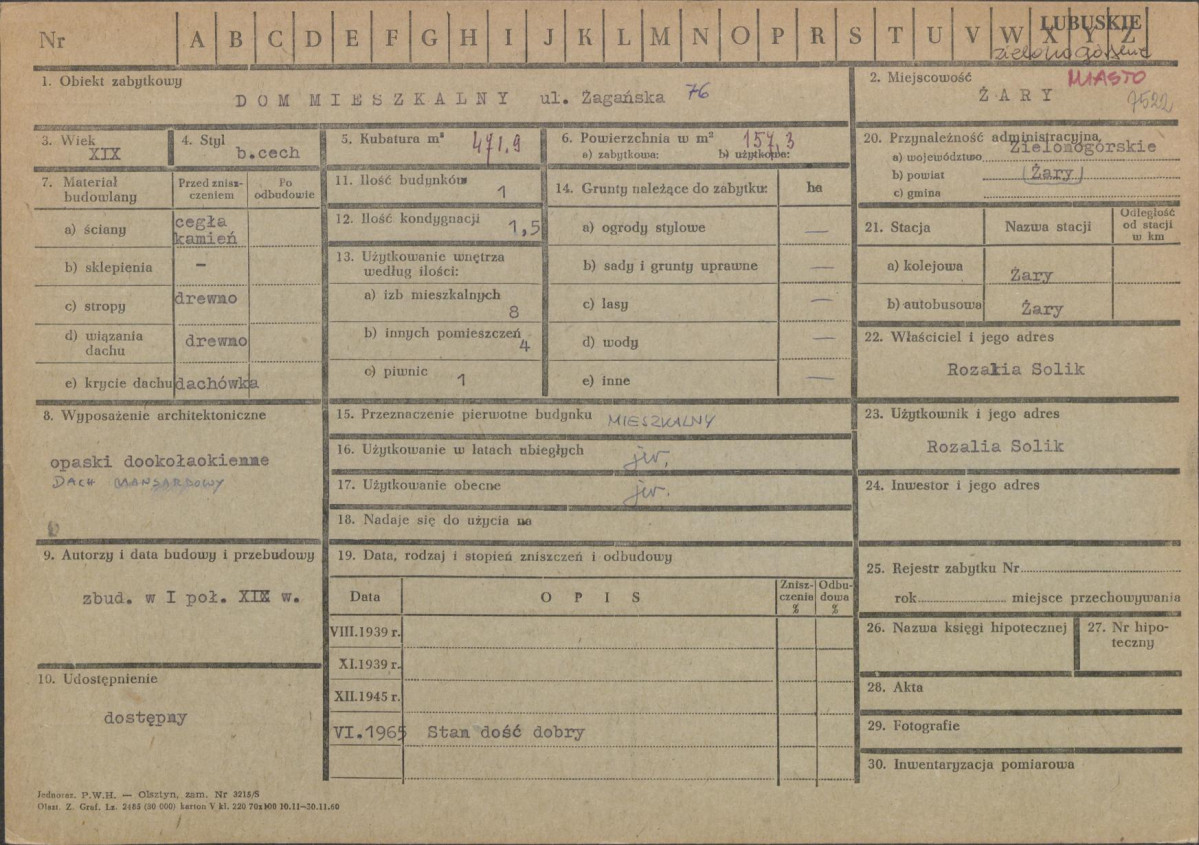 Nr A B C D E F G H I J K L M N O P R S T U V W X Y Z
LUBUSKIE
zielonogórskie
1. Obiekt zabytkowy
DOM MIESZKALNY ul. Żagańska 76
2. Miejscowość MIASTO
ŻARY 7522
3. Wiek
XIX
4. Styl
b.cech
5. Kubatura m³ 471,9
6. Powierzchnia w m² 157,3
a) zabytkowa: b) użytkowa:
7. Materiał budowlany
Przed zniszczeniem
Po odbudowie
a) ściany cegła kamień
b) sklepienia –
c) stropy drewno
d) wiązania dachu drewno
e) krycie dachu dachówka
8. Wyposażenie architektoniczne
opaski dookołaokienne
DACH MANSARDOWY
9. Autorzy i data budowy i przebudowy
zbud. w I poł. XIX w.
10. Udostępnienie
dostępny
11. Ilość budynków 1
12. Ilość kondygnacji 1,5
13. Użytkowanie wnętrza
według ilości:
a) izb mieszkalnych 8
b) innych pomieszczeń 4
c) piwnic 1
14. Grunty należące do zabytku: ha
a) ogrody stylowe —
b) sady i grunty uprawne —
c) lasy —
d) wody —
e) inne —
15. Przeznaczenie pierwotne budynku MIESZKALNY
16. Użytkowanie w latach ubiegłych jw.
17. Użytkowanie obecne jw.
18. Nadaje się do użycia na
19. Data, rodzaj i stopień zniszczeń i odbudowy
Data O P I S Zniszczenia % Odbudowa %
VIII.1939 r.
XI.1939 r.
XII.1945 r.
VI.1965 Stan dość dobry
20. Przynależność administracyjna
a) województwo Zielonogórskie
b) powiat Żary
c) gmina
21. Stacja Nazwa stacji Odległość od stacji w km
a) kolejowa Żary
b) autobusowa Żary
22. Właściciel i jego adres
Rozalia Solik
23. Użytkownik i jego adres
Rozalia Solik
24. Inwestor i jego adres
25. Rejestr zabytku Nr
rok miejsce przechowywania
26. Nazwa księgi hipotecznej
27. Nr hipoteczny
28. Akta
29. Fotografie
30. Inwentaryzacja pomiarowa
Jednoraz. P.W.H. — Olsztyn, zam. Nr 3215/S
Olszt. Z. Graf. Lz. 2465 (30 000) karton V kl. 220 70x100 10.11—30.11.60